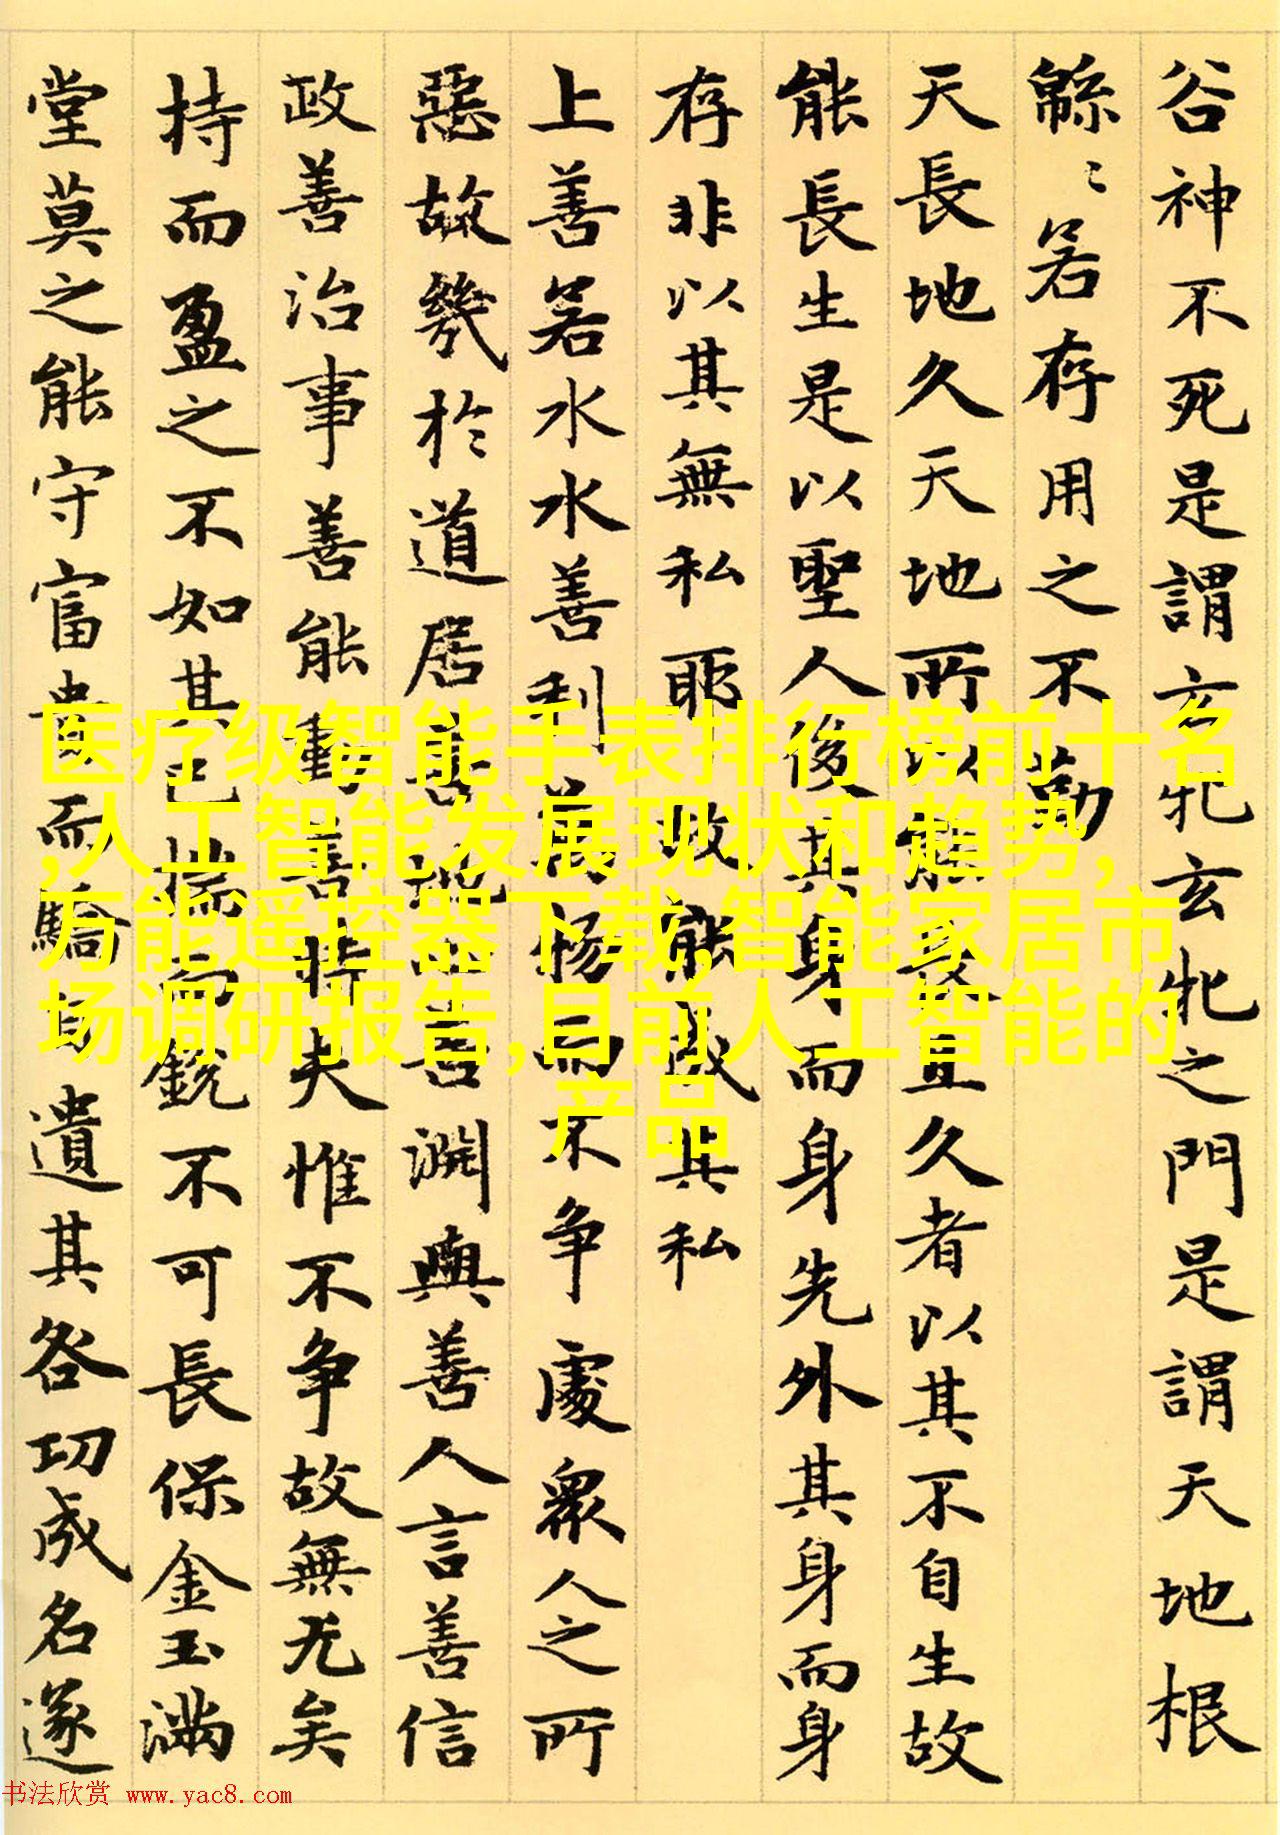 谷神不死是謂玄牝玄牝之門是謂天地根
緜〻若存用之不勤
天長地久天地所以能長且久者以其不自生故
能長生是以聖人後其身而身先外其身而身
存非以其無私耶故能成其私
上善若水水善利萬物而不争處衆人之所
惡故幾於道居善地心善淵與善人言善信
政善治事善能動善時夫惟不争故無尤矣
持而盈之不如其已揣而銳不可長保金玉滿
堂莫之能守富貴而驕自遺其咎功成名遂
医疗级智能手表排行榜前十名
,人工智能发展现状和趋势,
万能遥控器下载,智能家居市
场调研报告,目前人工智能的
产品
书法欣赏 www.yac8.com